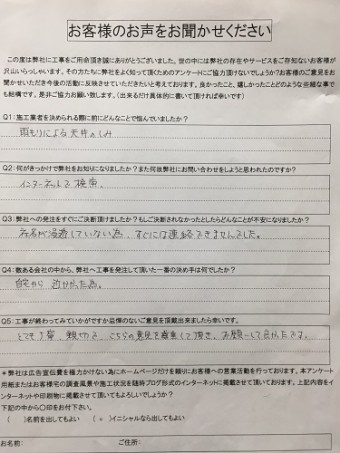 お客様のお声をお聞かせください
この度は弊社に工事をご用命頂き誠にありがとうございました。世の中には弊社の存在やサービスをご存知ないお客様が
沢山いらっしゃいます。その方たちに弊社をよく知って頂くためのアンケートにご協力頂けないでしょうか？お客様のご意見をお
聞かせいただき今後の活動に反映させていただきたいと考えております。良かったこと、嬉しかったことどのような些細な事で
も結構です。是非ご協力お願い致します。（出来るだけ具体的に書いて頂ければ幸いです）
Q1：施工業者を決められる際に前にどんなことで悩んでいましたか？
雨もりによる天井のしみ
Q2：何がきっかけで弊社をお知りになりましたか？また何故弊社にお問い合わせをしようと思われたのですか？
インターネットで検索。
Q3：弊社への発注をすぐにご決断頂けましたか？もしご決断されなかったとしたらどんなことが不安になりましたか？
社名が浸透していない為、すぐには連絡できませんでした。
Q4：数ある会社の中から、弊社へ工事を発注して頂いた一番の決め手は何でしたか？
自宅から近かった為。
Q5：工事が終わってみていかがですか品僧のないご意見を頂戴出来ましたら幸いです。
とても丁寧、親切で、こちらの意見を尊重して頂き、お願いして良かったです。
＊弊社は広告宣伝費を極力かけない為にホームページだけを頼りにお客様への営業活動を行っております。本アンケート
用紙またはお客様宅の調査風景や施工状況を随時ブログ形式のインターネットに掲載させて頂いております。上記内容をイ
ンターネットや印刷物に掲載させて頂いてもよろしいでしょうか？
下記の中から〇印をお付下さい。
（　）名前を出してもよい　（○）イニシャルなら出してもよい
お名前：　ご住所：